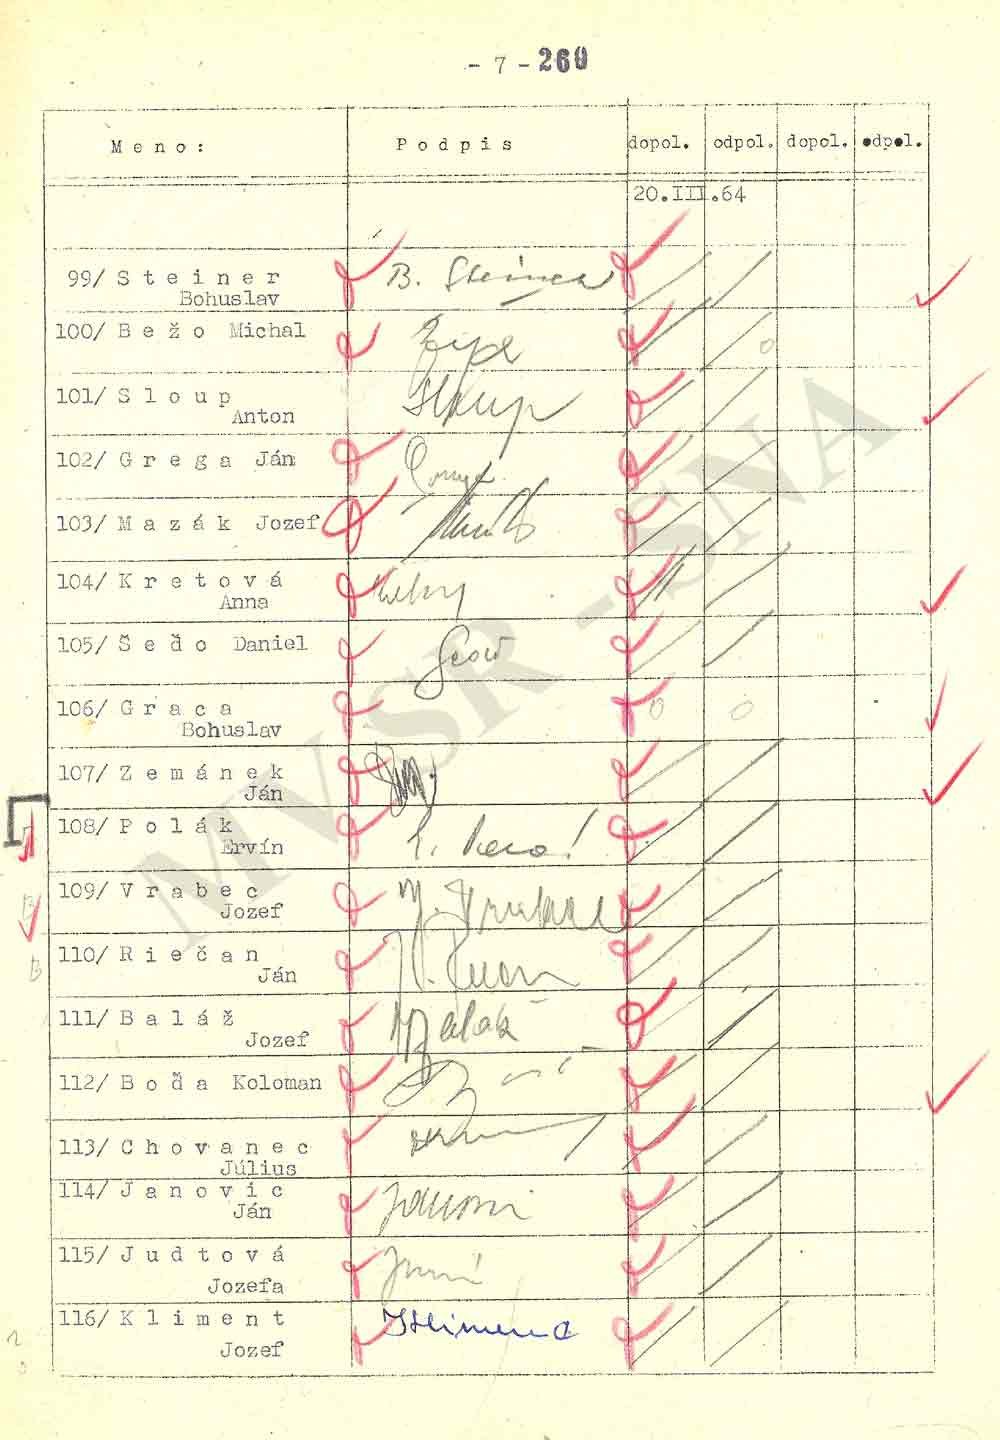 - 7 - 260
Meno: Podpis dopol. odpol. dopol. odpol.
20.III.64
99/ Steiner B. Steiner
Bohuslav
100/ Bežo Michal
101/ Sloup Sloup
Anton
102/ Grega Ján
103/ Mazák Jozef
104/ Kretová
Anna
105/ Šeďo Daniel
106/ Graca
Bohuslav
107/ Zemánek
Ján
108/ Polák
Ervín
109/ Vrabec
Jozef
110/ Riečan
Ján
111/ Baláž
Jozef
112/ Boďa Koloman
113/ Chovanec
Július
114/ Janovic
Ján
115/ Judtová
Jozefa
116/ Kliment
Jozef
MVSR - SNA